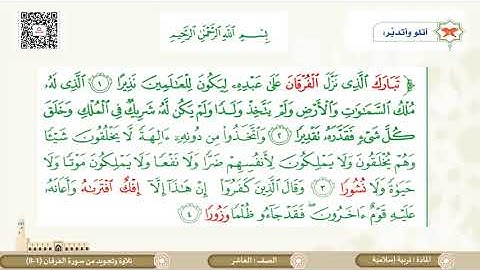 أتلو وأتدبّر:
بِسْمِ اللَّهِ الرَّحْمَٰنِ الرَّحِيمِ
﴿ تَبَارَكَ الَّذِي نَزَّلَ الْفُرْقَانَ عَلَىٰ عَبْدِهِ لِيَكُونَ لِلْعَالَمِينَ نَذِيرًا ١ الَّذِي لَهُ
مُلْكُ السَّمَٰوَٰتِ وَالْأَرْضِ وَلَمْ يَتَّخِذْ وَلَدًا وَلَمْ يَكُن لَّهُ شَرِيكٌ فِي الْمُلْكِ وَخَلَقَ
كُلَّ شَيْءٍ فَقَدَّرَهُ تَقْدِيرًا ٢ وَاتَّخَذُوا مِن دُونِهِ ءَالِهَةً لَّا يَخْلُقُونَ شَيْئًا
وَهُمْ يُخْلَقُونَ وَلَا يَمْلِكُونَ لِأَنفُسِهِمْ ضَرًّا وَلَا نَفْعًا وَلَا يَمْلِكُونَ مَوْتًا وَلَا
حَيَوٰةً وَلَا نُشُورًا ٣ وَقَالَ الَّذِينَ كَفَرُوا إِنْ هَٰذَا إِلَّا إِفْكٌ افْتَرَىٰهُ وَأَعَانَهُ
عَلَيْهِ قَوْمٌ ءَاخَرُونَ فَقَدْ جَاءُو ظُلْمًا وَزُورًا ٤
المادة : تربية إسلامية
الصف : العاشر
تلاوة وتجويد من سورة الفرقان (١-١١)